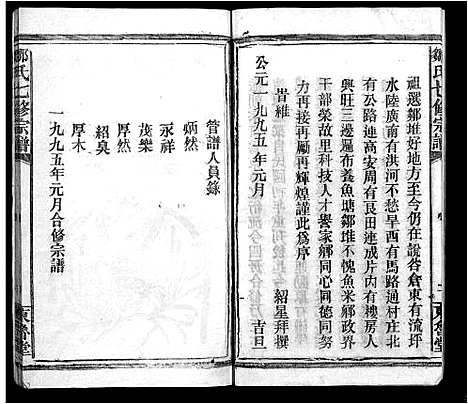 鄒氏七修宗譜
二
東魯堂
祖選鄒堆好地方至今仍在說谷倉東有流坪
水陸廣南有洪河不愁旱西有馬路通村庄北
有公路連高安周有良田連成片内有樓房人
興旺三邊遍布養魚塘鄒堆不愧魚米鄉政界
干部榮故里科技人才譽家鄉同心同德同努
力再接再勵再輝煌謹此為序
昔維
公元一九九五年元月 紹星拜撰 吉旦
鄒氏七修宗譜
管譜人員錄
炳然
永祥
茂樂
厚然
紹奐
厚木
一九九五年元月合修宗譜
東魯堂